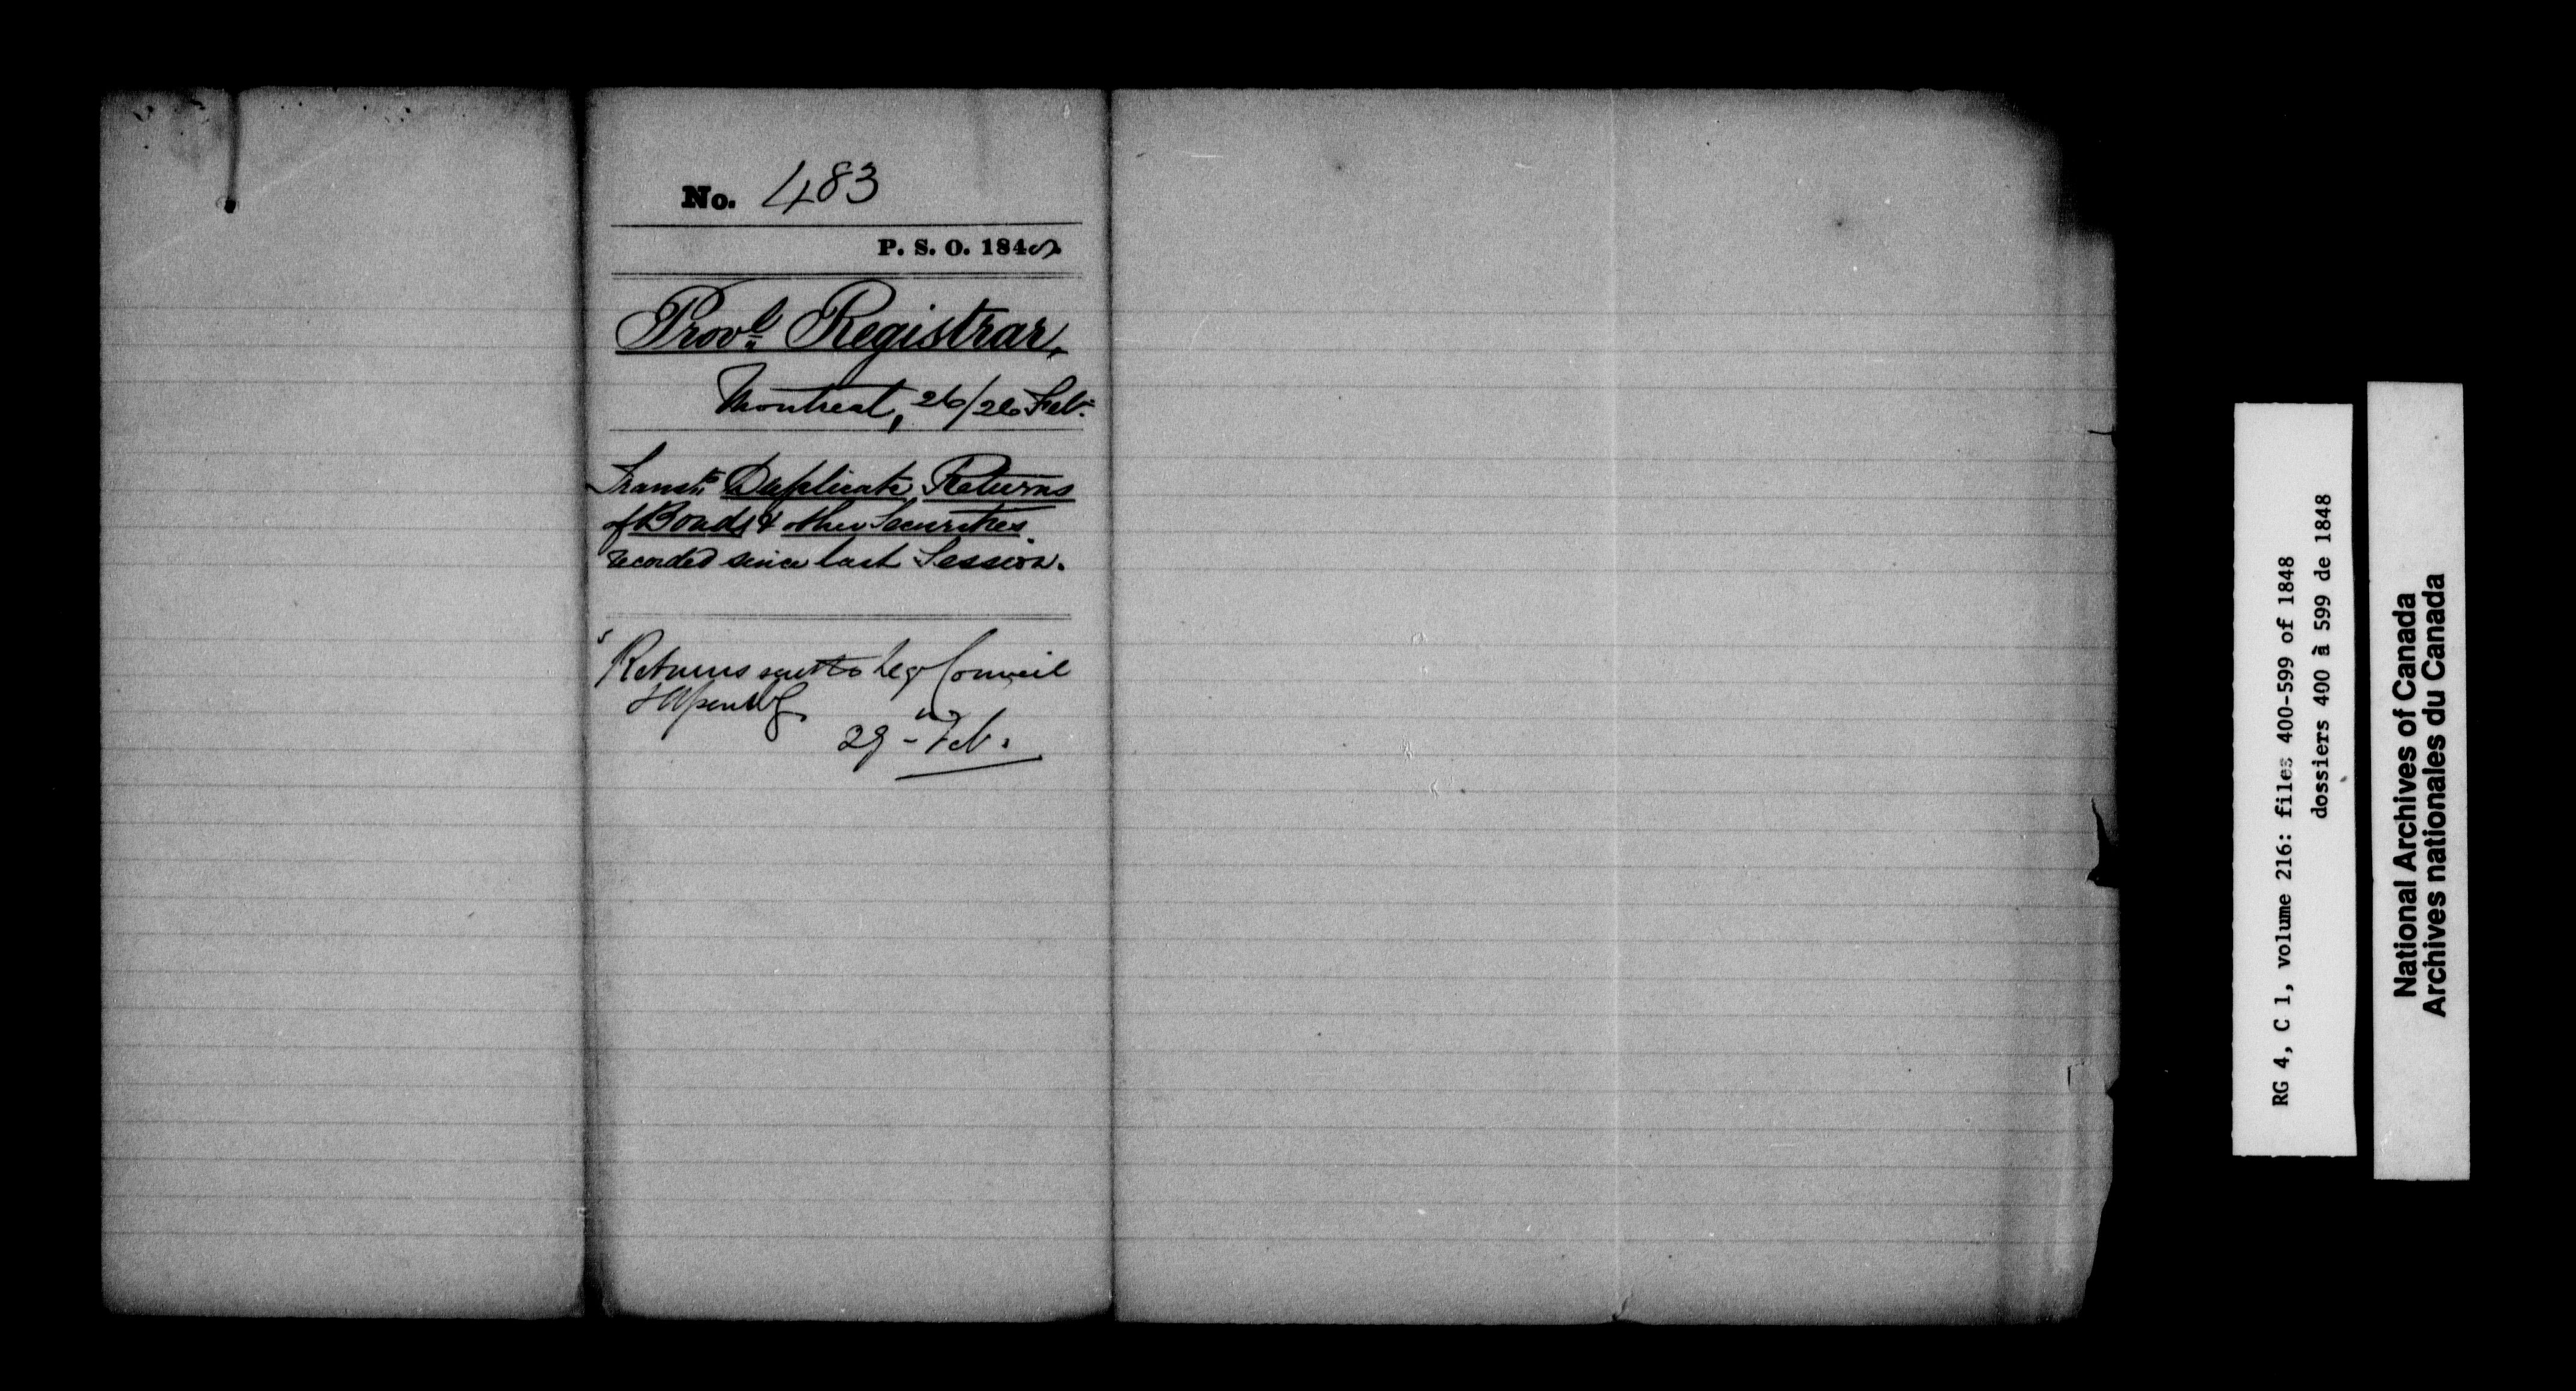 No. 483
P. S. O. 1848
Provl. Registrar,
Montreal, 26/26 Feb.
Transts. Duplicate Returns
of Bonds & other Securities
recorded since last Session.
Returns sent to Leg Council
& Assembly
29 - Feb.
RG 4, C 1, volume 216: files 400-599 of 1848
dossiers 400 à 599 de 1848
National Archives of Canada
Archives nationales du Canada